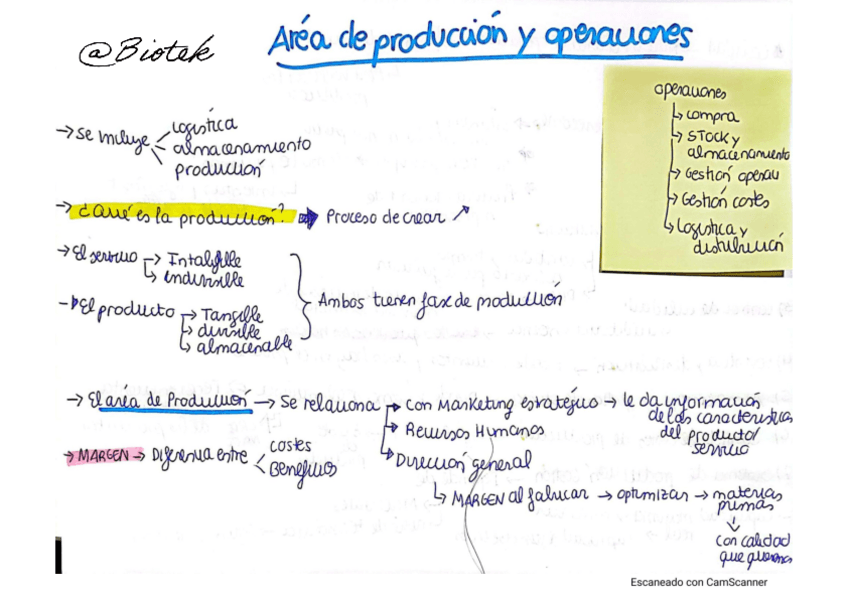 @Biotek
Aréa de producción y operaciones
operaciones
compra
STOCK y
almacenamiento
Gestión operaci
Gestión costes
Logistica y
distribución
→ Se incluye
logistica
almacenamiento
producción
→ ¿Qué es la producción? → Proceso de crear ↗
→ El servicio → Intangible
↳ indivisible
→ El producto → Tangible
↳ divisible
↳ almacenable
Ambos tienen fase de producción
→ El aréa de Producción → Se relaciona → con Marketing estratégico → le da información
de las caracteristicas
del producto/
servicio
→ Recursos Humanos
→ Dirección general
↳ MARGEN al fabricar → optimizar → materias
primas
↓
con calidad
que queremos
→ MARGEN → Diferencia entre
costes
Beneficios
Escaneado con CamScanner